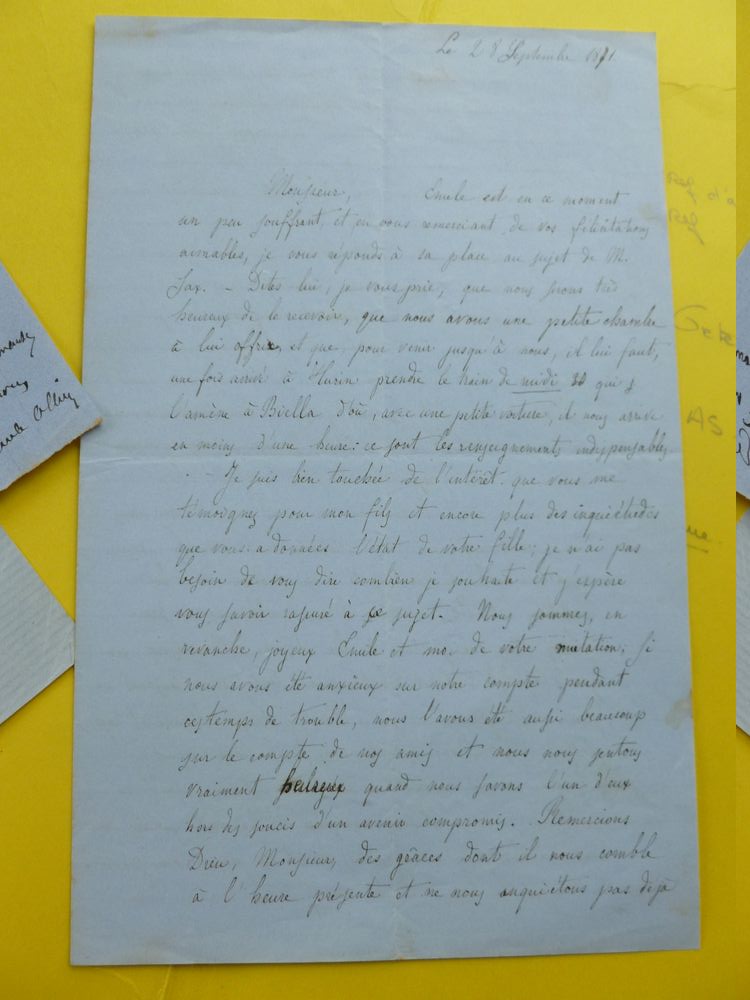 Le 28 Septembre 1871
Monsieur, Emile est en ce moment
un peu souffrant, et en vous remerciant de vos félicitations
aimables, je vous réponds à sa place au sujet de M.
Sax. - Dites lui, je vous prie, que nous serons très
heureux de le recevoir, que nous avons une petite chambre
à lui offrir, et que, pour venir jusqu'à nous, il lui faut,
une fois arrivé à Turin prendre le train de midi 30 qui
l'amène à Biella d'où, avec une petite voiture, il nous arrive
en moins d'une heure: ce sont les renseignements indispensables.
- Je suis bien touchée de l'intérêt que vous me
témoignez pour mon fils et encore plus des inquiétudes
que vous a données l'état de votre fille; je n'ai pas
besoin de vous dire combien je souhaite et j'espère
vous savoir rassuré à ce sujet. Nous sommes, en
revanche, joyeux Emile et moi de votre mutation; si
nous avons été anxieux sur notre compte pendant
ces temps de trouble, nous l'avons été aussi beaucoup
sur le compte de nos amis et nous nous sentons
vraiment heureux quand nous savons l'un d'eux
hors des soucis d'un avenir compromis. Remercions
Dieu, Monsieur, des grâces dont il nous comble
à l'heure présente et ne nous inquiétons pas déjà
AS